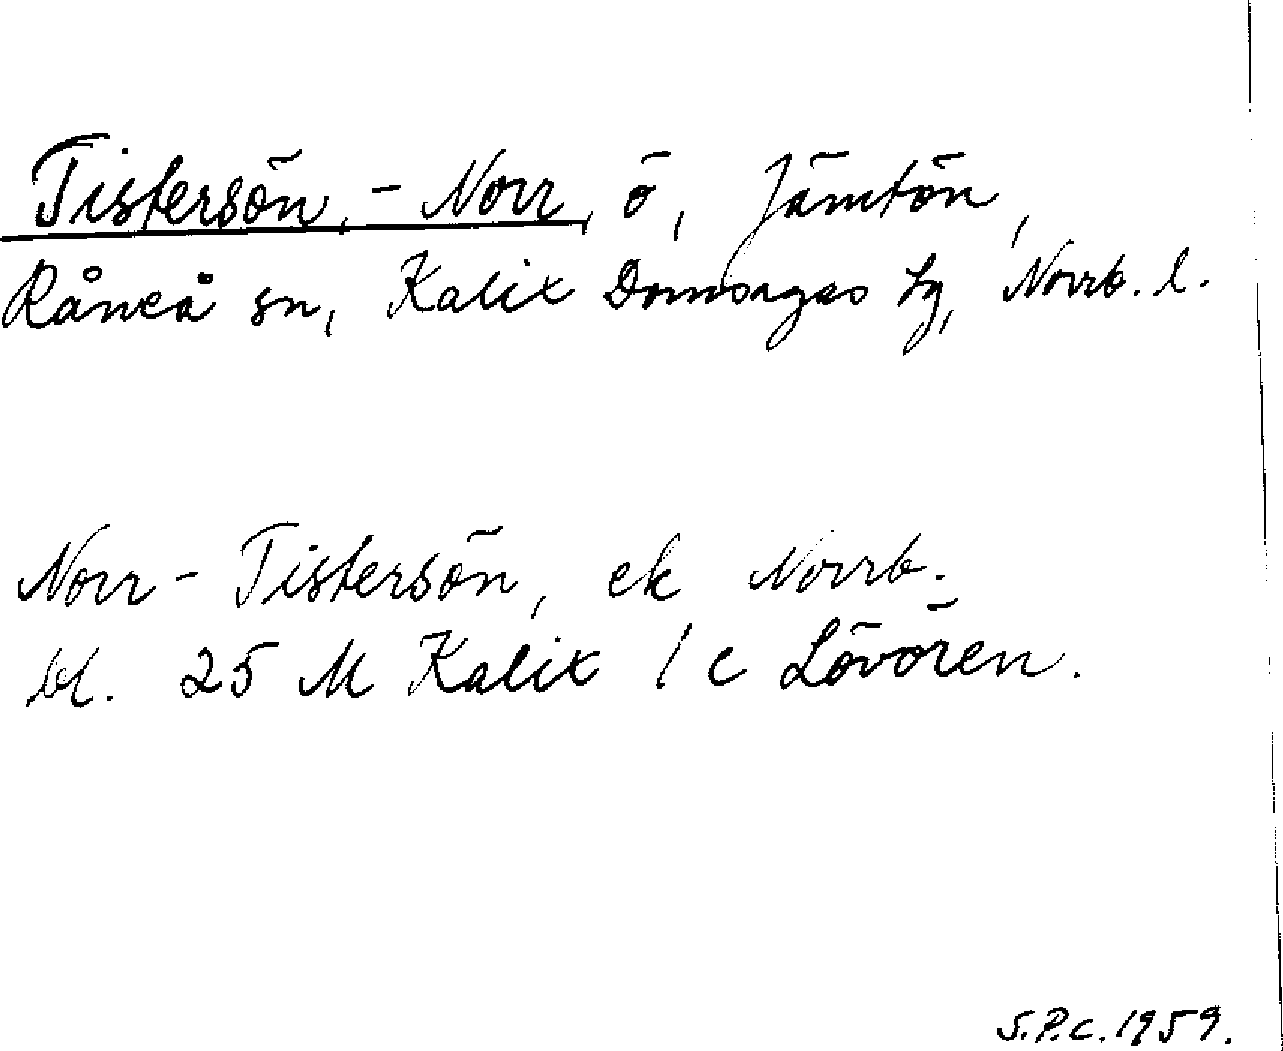 Tistersön, - Norr, ö, Jämtön,
Råneå sn, Kalix Domsagas tg, Norrb. l.
Norr - Tistersön, ek Norrb.
bl. 25 M Kalix / c Lövören.
S.P.C. 1959.